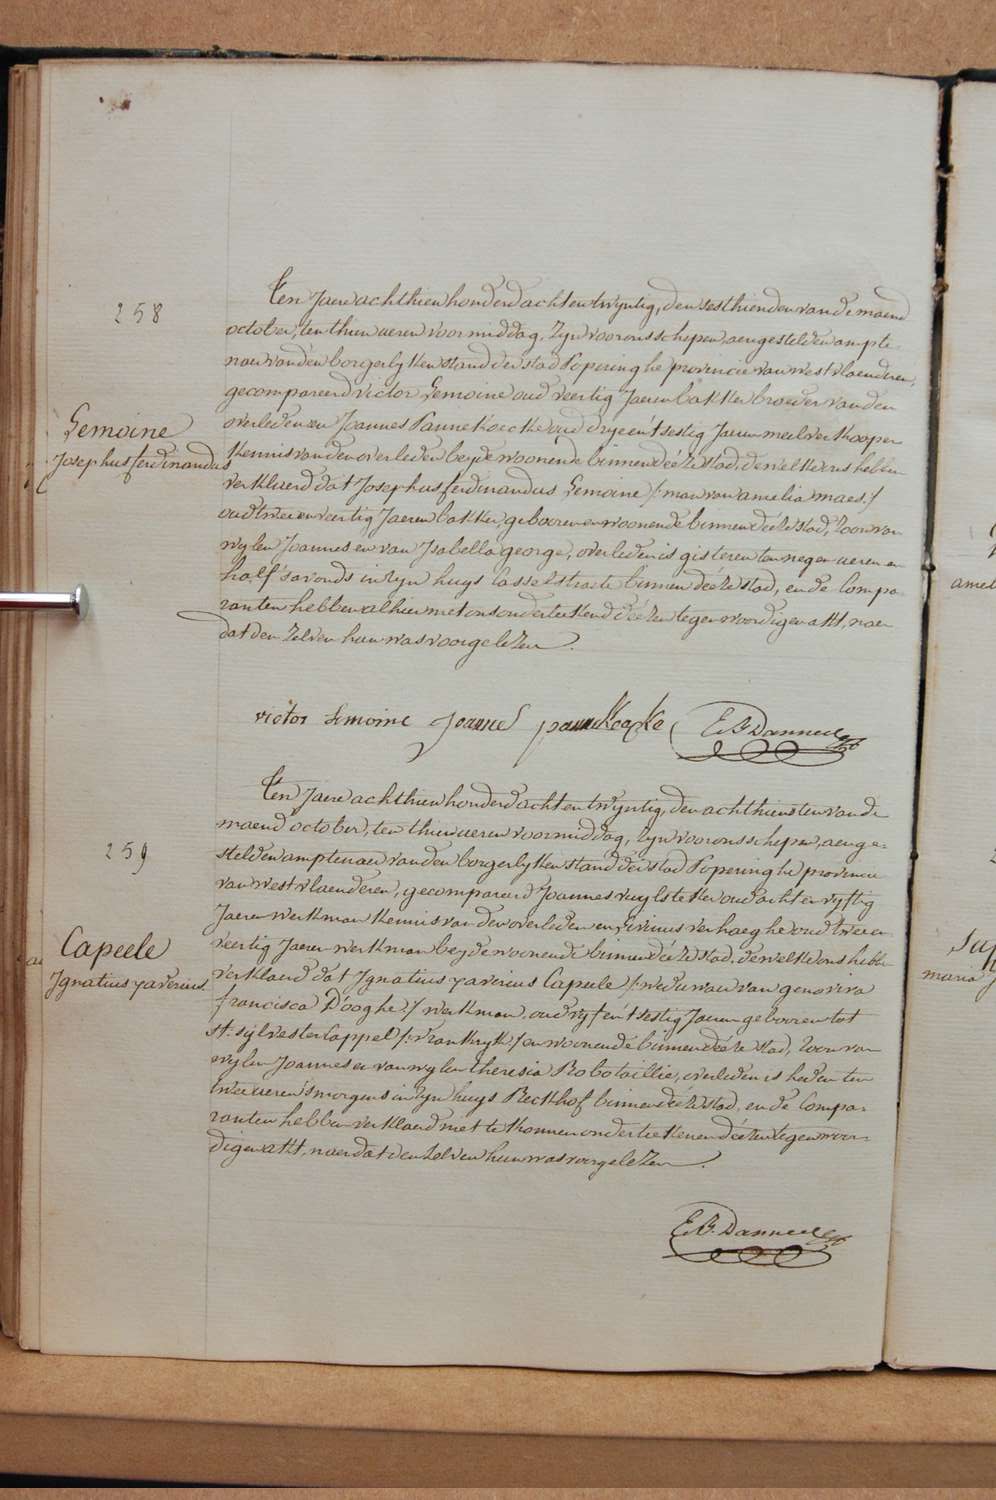 258
Lemoine
Josephus ferdinandus
Ten Jaere achthien honderd acht en twyntig, den sesthienden van de maend
october, ten thien ueren voormiddag, Zyn voor ons schepen, aengestelden ampte-
naer van den borgerlyken stand der stad Poperinghe provincie van westvlaenderen,
gecompareerd victor Lemoine oud veertig Jaeren bakker broeder van den
overledenen Joannes Pannekoecke oud drye en t'sestig Jaeren meelverkooper
kennis van den overleden beyde woonende binnen deéze stad, dewelke ons hebben
verklaerd dat Josephus ferdinandus Lemoine /: man van amelia maes :/
oud twee en veertig Jaeren bakker, gebooren en woonende binnen deéze stad, Zoon van
wylen Joannes en van Isabella george, overleden is gisteren ten negen ueren en
half s'avonds in zyn huys Casselstraete binnen deéze stad, en de Compa-
ranten hebben alhier met ons onderteekend deézen tegenwoordigen akt, naer
dat den Zelven hun was voorgelezen.
victor Lemoine Joannes pannekoecke E B Danneel
259
Capeele
Ignatius xaverius
Ten Jaere achthien honderd acht en twyntig, den achthiensten van de
maend october, ten thien ueren voormiddag, Zyn voor ons schepen, aenge-
stelden amptenaer van den borgerlyken stand der stad Poperinghe provincie
van westvlaenderen, gecompareerd Joannes vuylsteke oud acht en vyftig
Jaeren werkman kennis van den overleden en verhaeghe oud twee en
veertig Jaeren werkman beyde woonende binnen deéze stad, dewelke ons hebben
verklaerd dat Ignatius xaverius Capeele /: weduwaer van genoviva
francisca D'ooghe :/ werkman, oud vyf en t'sestig Jaeren gebooren tot
St. sylvester Cappel /: vrankryk :/ en woonende binnen deéze stad, Zoon van
wylen Joannes en van wylen theresia Robotaillie, overleden is heden ten
twee ueren s'morgens in zyn huys Reckhof binnen deéze stad, en de Compa-
ranten hebben verklaerd niet te konnen onderteekenen deézen tegenwoor-
digen akt, naer dat den zelven hun was voorgelezen.
E B. Danneel